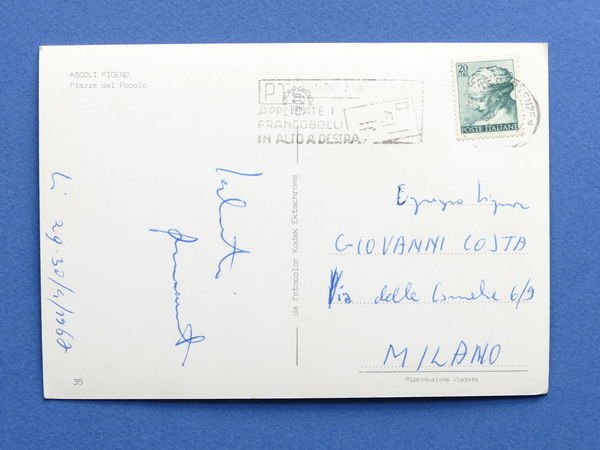 ASCOLI PICENO
Piazza del Popolo
35
Li 29.30/4/1968
Saluti
da Fotocolor Kodak Ektachrome
APPLICATE I
FRANCOBOLLI
IN ALTO A DESTRA
20
LIRE
POSTE ITALIANE
Egregio Signor
GIOVANNI COSTA
Via delle Camelie 6/9
MILANO
Riproduzione Vietata